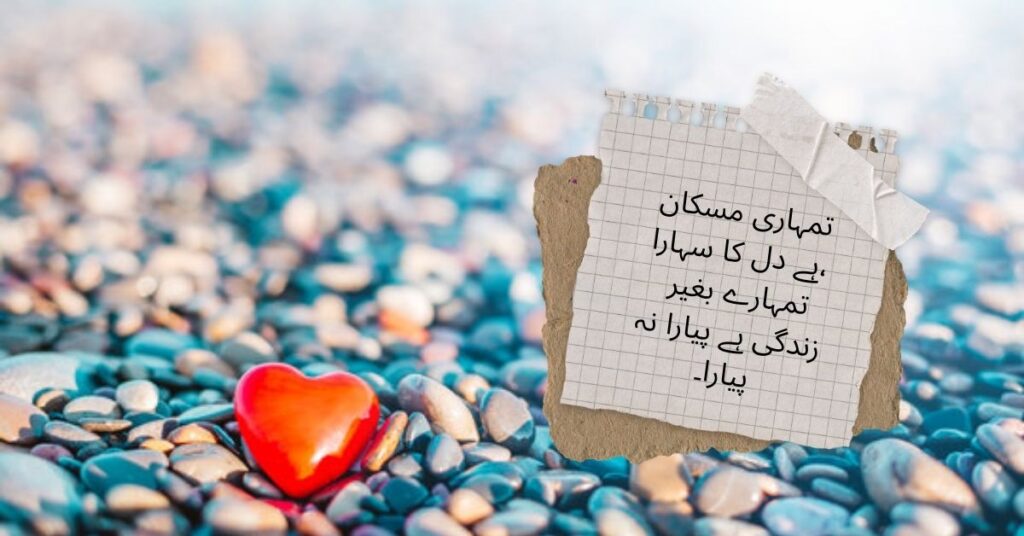 تمہاری مسکان
ہے دل کا سہارا،
تمہارے بغیر
زندگی ہے پیارا نہ
پیارا۔